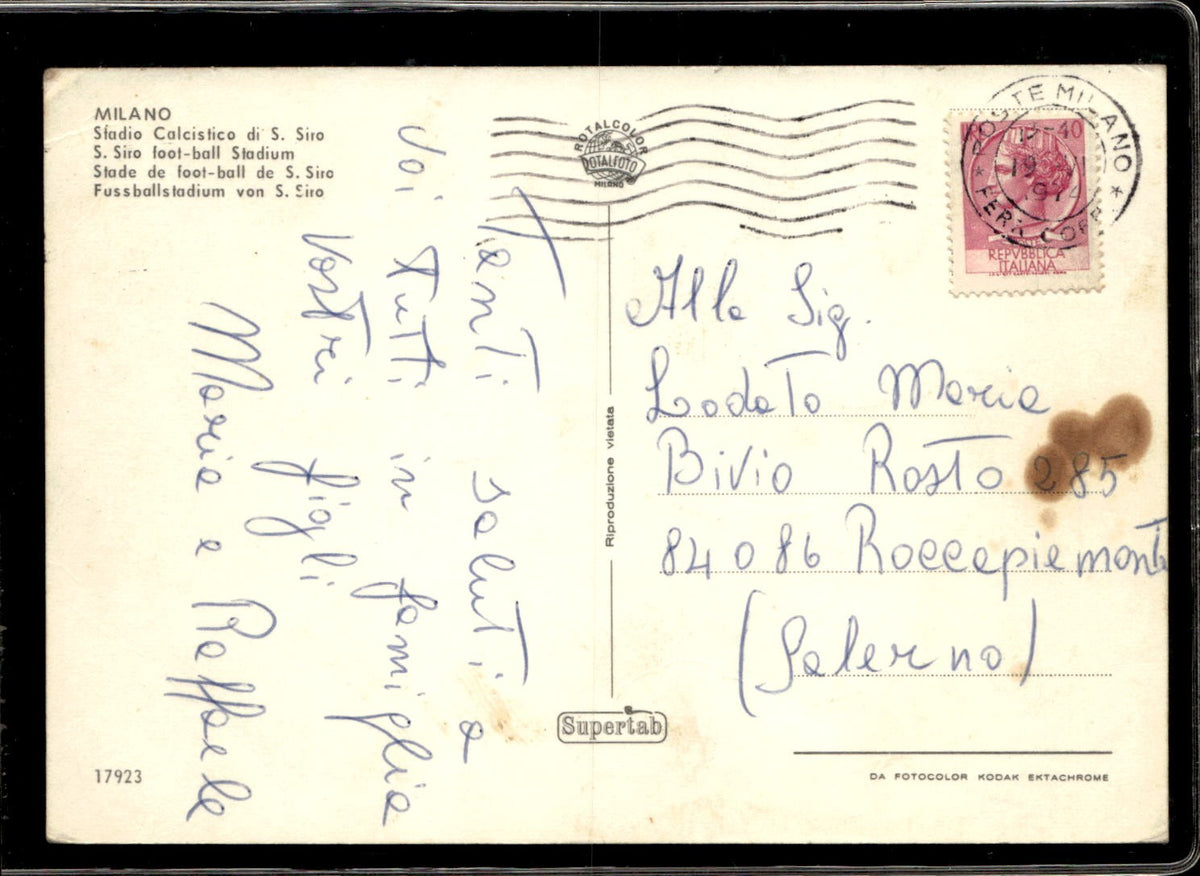 MILANO
Stadio Calcistico di S. Siro
S. Siro foot-ball Stadium
Stade de foot-ball de S. Siro
Fussballstadium von S. Siro
Tanti saluti a
voi tutti in famiglia
vostri figli
Maria e Raffaele
17923
ROTALCOLOR
ROTALFOTO
MILANO
Riproduzione vietata
Supertab
POSTE MILANO
-40
19
REPVBBLICA
ITALIANA
Alla Sig.
Lodato Maria
Bivio Rosto 285
84086 Roccapiemonte
(Salerno)
DA FOTOCOLOR KODAK EKTACHROME